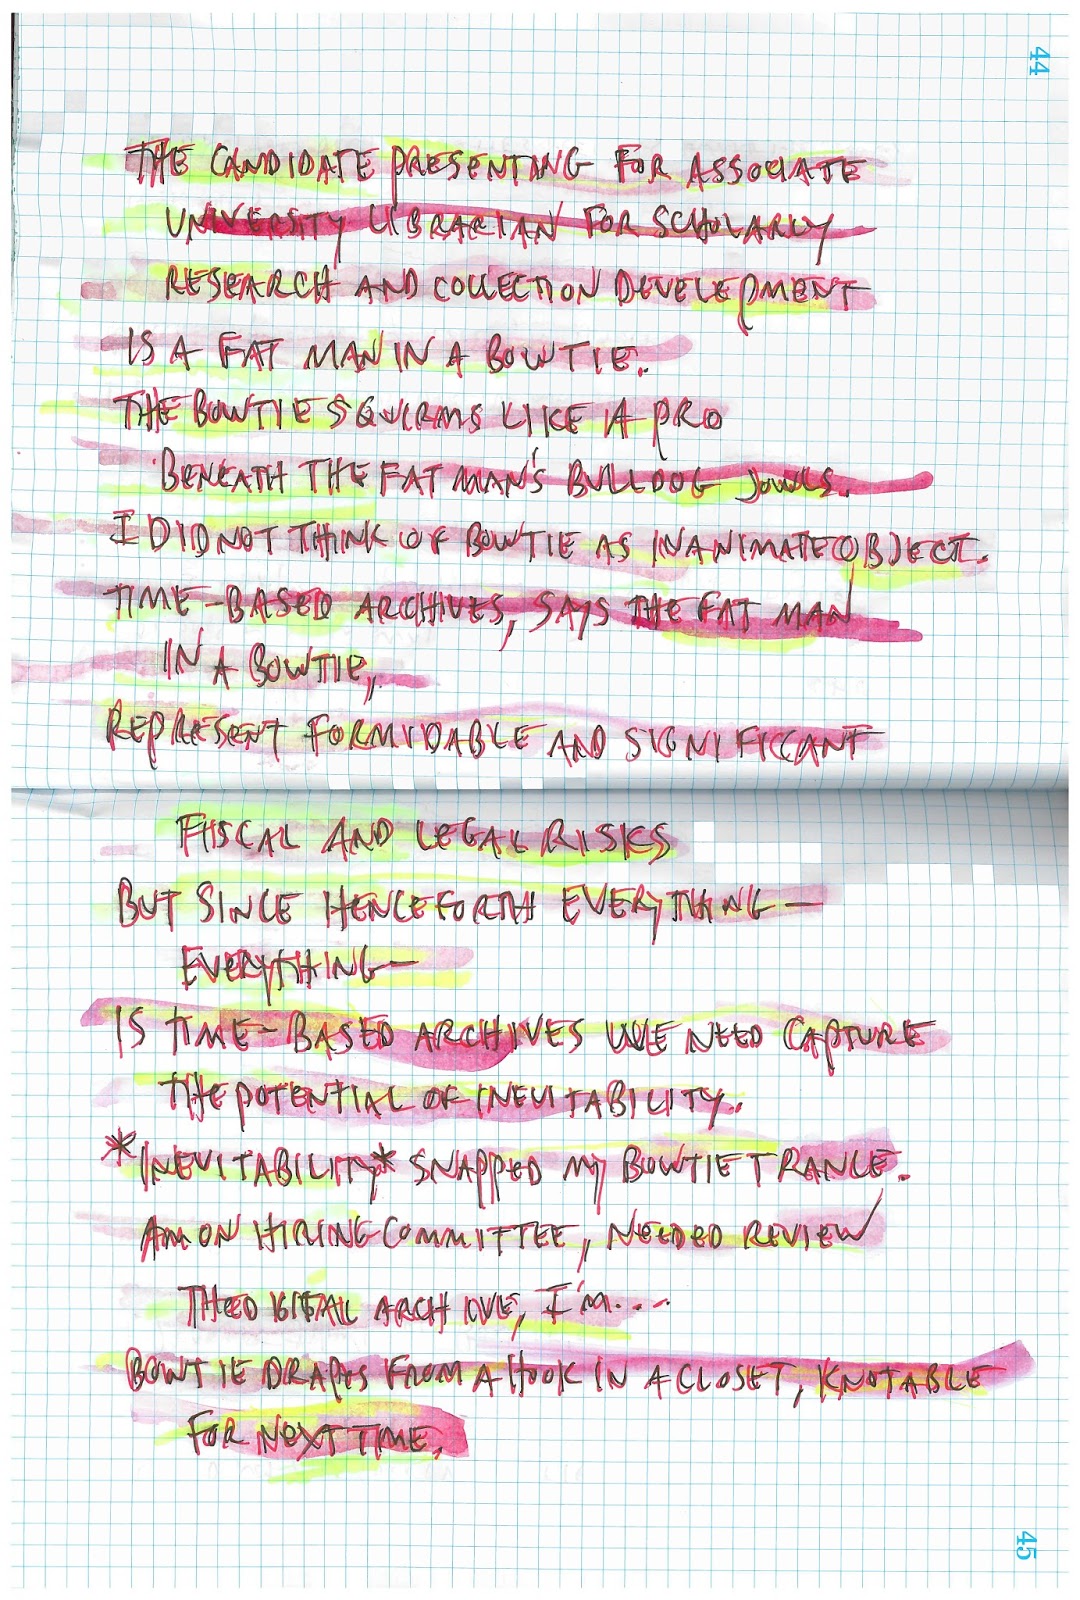 44
THE CANDIDATE PRESENTING FOR ASSOCIATE
UNIVERSITY LIBRARIAN FOR SCHOLARLY
RESEARCH AND COLLECTION DEVELEPMENT
IS A FAT MAN IN A BOWTIE.
THE BOWTIE SQUIRMS LIKE A PRO
BENEATH THE FAT MAN'S BULLDOG JOWLS.
I DID NOT THINK OF BOWTIE AS INANIMATE OBJECT.
TIME-BASED ARCHIVES, SAYS THE FAT MAN
IN A BOWTIE,
REPRESENT FORMIDABLE AND SIGNIFICCANT
FISCAL AND LEGAL RISKS
BUT SINCE HENCEFORTH EVERYTHING—
EVERYTHING—
IS TIME-BASED ARCHIVES WE NEED CAPTURE
THE POTENTIAL OF INEVITABILITY.
*INEVITABILITY* SNAPPED MY BOWTIE TRANCE.
AM ON HIRING COMMITTEE, NEEDED REVIEW
THE DIGITAL ARCHIVE, I'm....
BOWTIE DRAPES FROM A HOOK IN A CLOSET, KNOTABLE
FOR NEXT TIME.
45